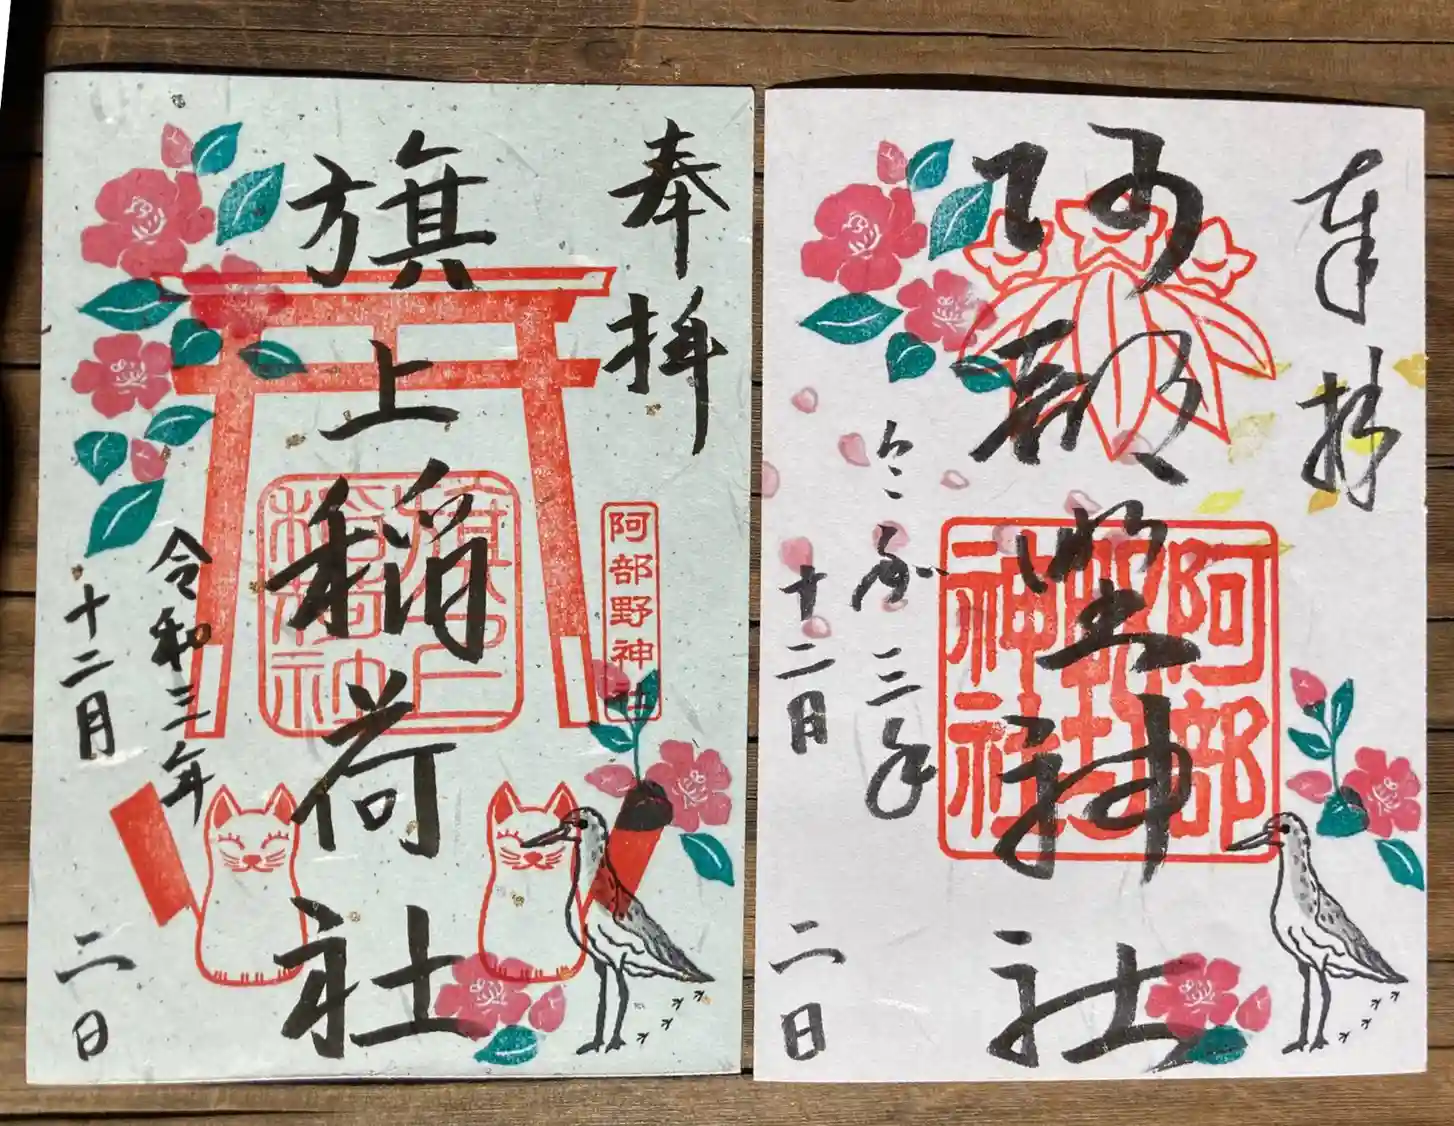 奉拝
旗上稲荷社
阿部野神社
旗上
稲荷社
令和三年
十二月二日
奉拝
阿部埜神社
阿部
神社
令和三年
十二月二日